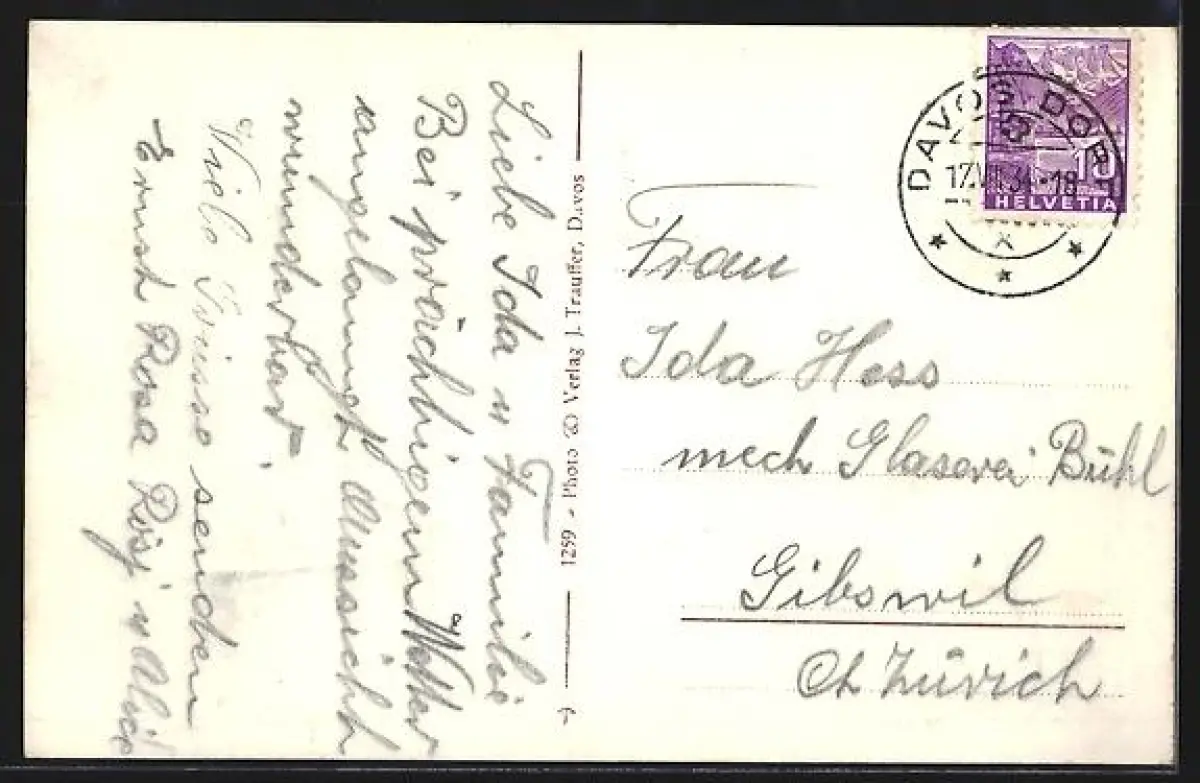 Liebe Ida u Familie
Bei prächtigem Wetter
angelangt Aussicht
wunderbar.
Viele Grüsse senden
Ernst Rosa Rösj u Alice
1259 - Photo & Verlag J. Trauffer, Davos
DAVOS DORF
17.VII.34-18
10
HELVETIA
Frau
Ida Hess
mech Glaserei Bühl
Gibswil
Ct Zürich